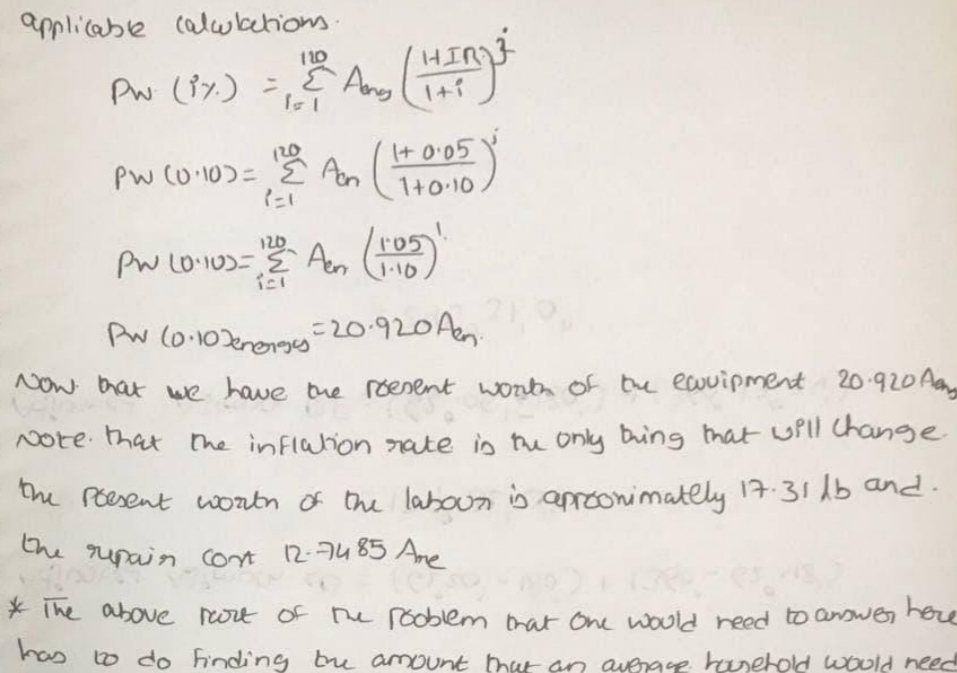 applicable calculations.
PW (i%) = 120 Σ i=1 Aeng (1+IR / 1+i)^j
PW (0.10) = 120 Σ i=1 Aen (1+0.05 / 1+0.10)^i
PW (0.10) = 120 Σ i=1 Aen (1.05 / 1.10)^1.
PW (0.10)energy = 20.920 Aen.
Now that we have the present worth of the equipment 20.920 Aeng
Note. that the inflation rate is the only thing that will change.
the present worth of the labour is approximately 17.31 lb and.
the repair cost 12.7485 Ame
* The above part of the problem that one would need to answer here
has to do finding the amount that an average household would need